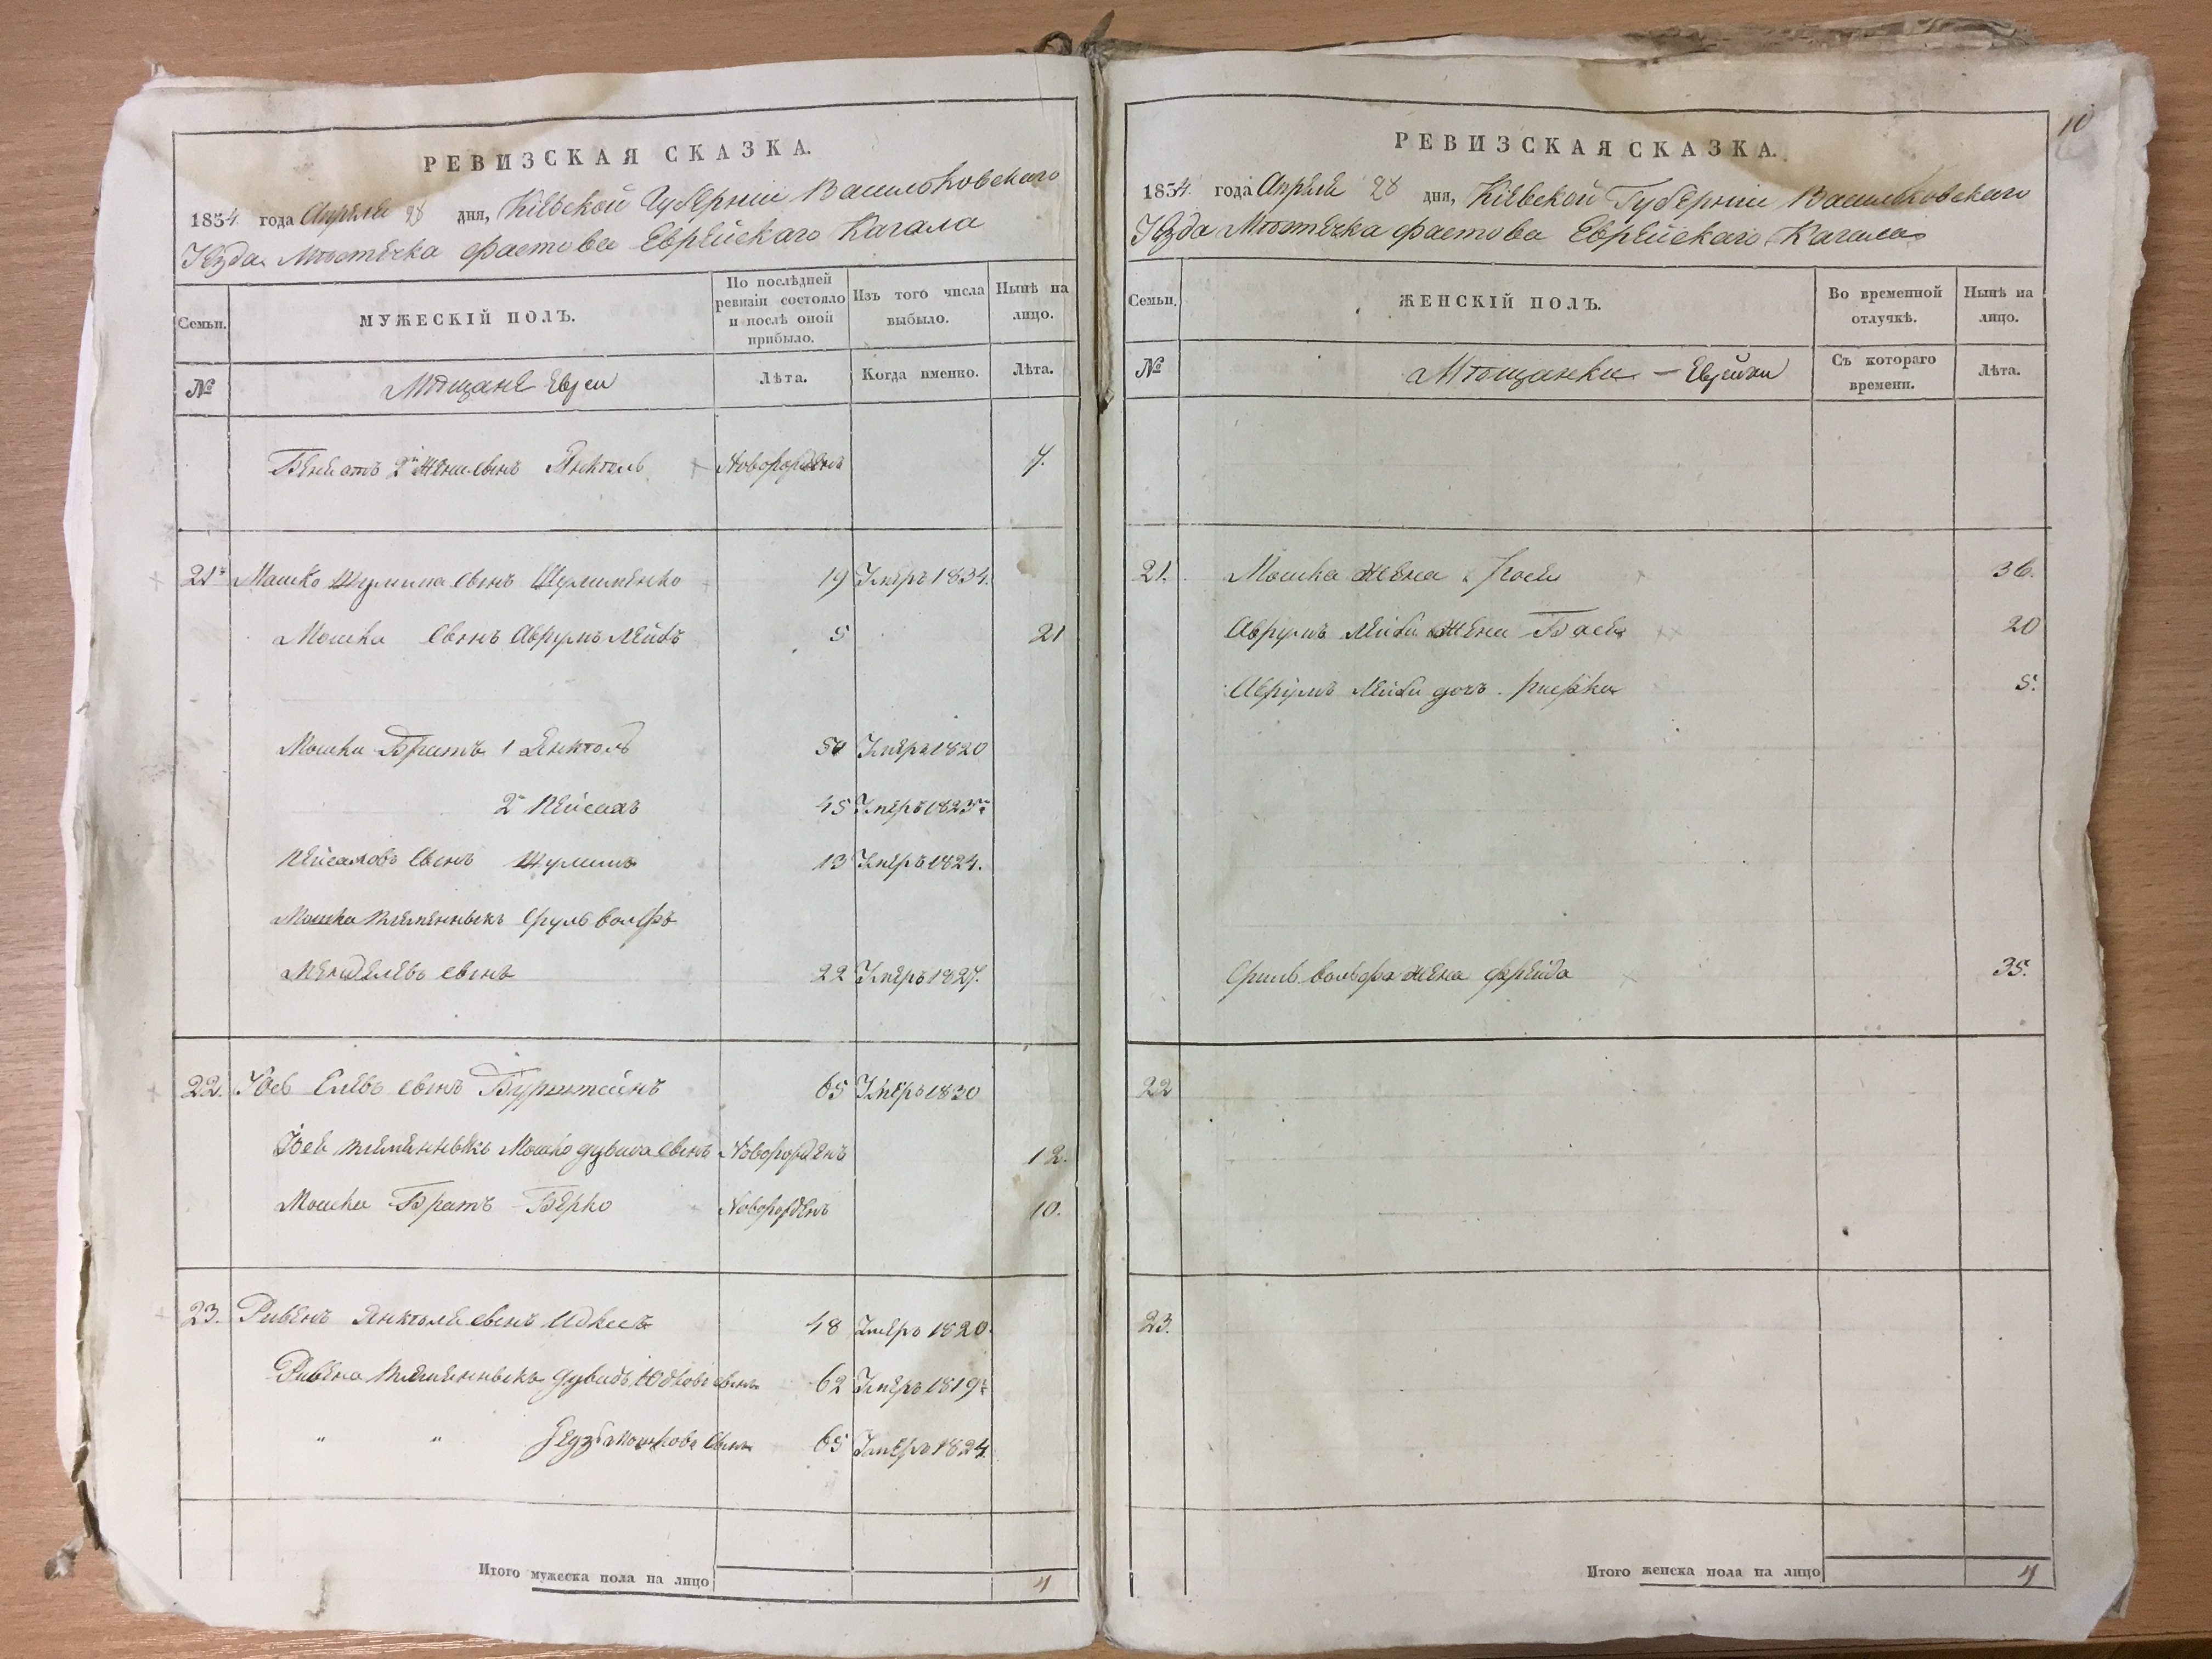 РЕВИЗСКАЯ СКАЗКА.
1834 года Апреля 28 дня, Кіевской Губерніи Васильковскаго
Уезда Местечка Фастова Еврейскаго Кагала
Семьи.
МУЖЕСКІЙ ПОЛЪ.
По послѣдней ревизіи состояло и послѣ оной прибыло.
Изъ того числа выбыло.
Нынѣ на лицо.
№
Мещане Евреи
Лѣта.
Когда именно.
Лѣта.
2й жены сынъ Янкель Новорожденъ 7.
21й Мошко Шулима сынъ Шулименко 19 Умеръ 1834.
Мошка сынъ Аврумъ Лейбъ 5 21
Мошки Братъ 1 Янкель 50 Умеръ 1820
2й Пейсахъ 45 Умеръ 1823го
Пейсаховъ сынъ Шулимъ 13 Умеръ 1824.
Мошка племенникъ Сруль Волфъ
Менделевъ сынъ 22 Умеръ 1827.
22. Іось сынъ Бурштейнъ 65 Умеръ 1830
племенникъ Мошко Дувида сынъ Новорожденъ 12.
Мошки Братъ Берко Новорожденъ 10.
23. Рувенъ Янкеля сынъ 48 Умеръ 1820.
Рувена племенникъ Дувидъ сынъ 62 Умеръ 1819го
" " Мошкова сынъ 65 Умеръ 1824.
Итого мужеска пола на лицо 4
10
РЕВИЗСКАЯ СКАЗКА.
1834 года Апреля 28 дня, Кіевской Губерніи Васильковскаго
Уезда Местечка Фастова Еврейскаго Кагала
Семьи.
ЖЕНСКІЙ ПОЛЪ.
Во временной отлучкѣ.
Нынѣ на лицо.
№
Мещанки - Еврейки
Съ котораго времени.
Лѣта.
21. Мошка жена 36.
Аврумъ Лейби жена Бася 20
Аврумъ Лейби дочь Рифка 5.
Сруль Вольфа жена Фрейда 35.
22
23.
Итого женска пола на лицо 4